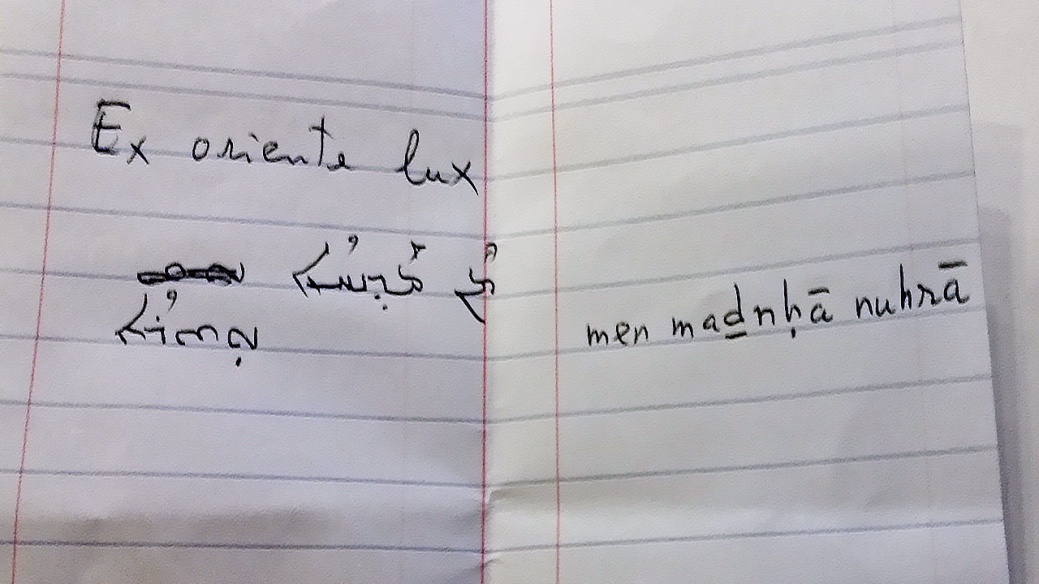 Ex oriente lux
ܡܶܢ ܡܰܕܢܚܳܐ
ܢܘܼܗܪܳܐ
men maḏnḥā nuhrā